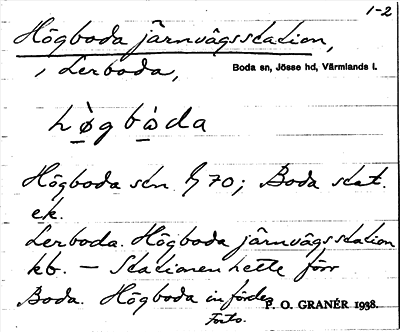 1-2
Högboda järnvägsstation,
i Lerboda,
Boda sn, Jösse hd, Värmlands l.
hø̀gbàda
Högboda stn 70; Boda stat.
ek.
Lerboda. Högboda järnvägsstation
kb. — Stationen hette förr
Boda. Högboda infördes
P. O. GRANÉR 1938.
Forts.